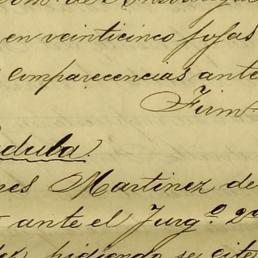 en veinticinco fojas
comparecencias ante
Firm
edula
res Martinez de
ante el Juzg.º 2º
pidiendo se cite